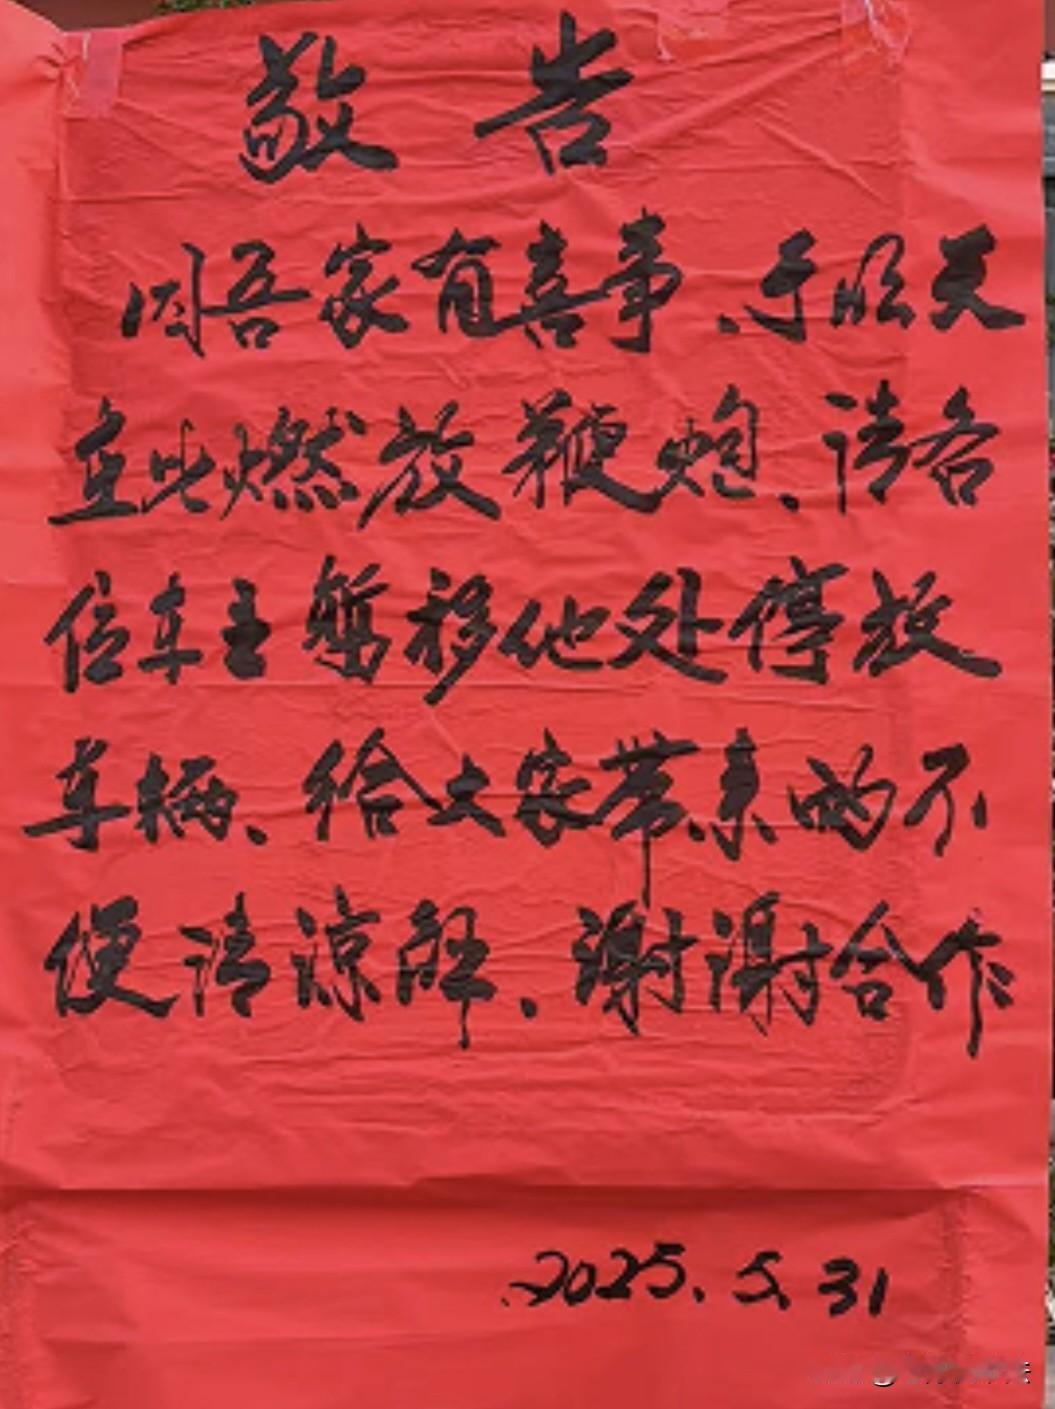 敬告
因吾家有喜事、于明天
在此燃放鞭炮、请各
位车主暂移他处停放
车辆、给大家带来的不
便请谅解、谢谢合作
2025.5.31